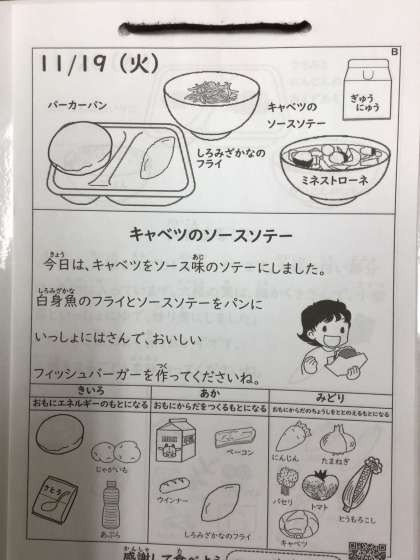 B
11/19 (火)
バーガーパン
キャベツの
ソースソテー
ぎゅう
にゅう
しろみざかなの
フライ
ミネストローネ
キャベツのソースソテー
きょう あじ
今日は、キャベツをソース味のソテーにしました。
しろみざかな
白身魚のフライとソースソテーをパンに
いっしょにはさんで、おいしい
つく
フィッシュバーガーを作ってくださいね。
きいろ あか みどり
おもにエネルギーのもとになる おもにからだをつくるもとになる おもにからだのちょうしをととのえるもとになる
じゃがいも
さとう
あぶら
ベーコン
ウインナー
しろみざかなのフライ
にんじん
たまねぎ
パセリ
トマト
とうもろこし
キャベツ
かんしゃ た
感謝して食べよう